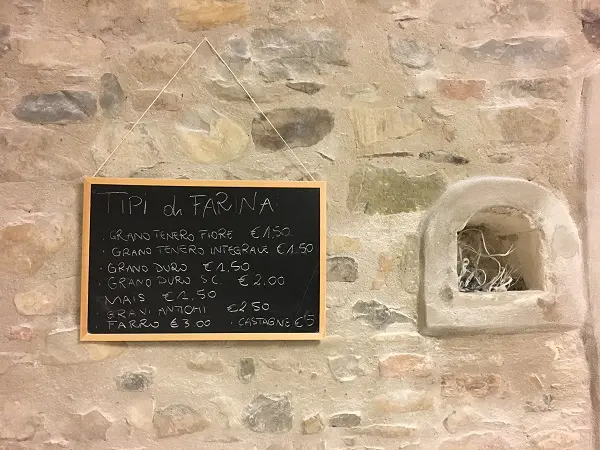 TIPI di FARINA
. GRANO TENERO FIORE €1.50
. GRANO TENERO INTEGRALE €1.50
. GRANO DURO €1.50
. GRANO DURO S.C. €2.00
MAIS €1.50
. GRANI ANTICHI €2.50
FARRO €3.00 . CASTAGNE €5